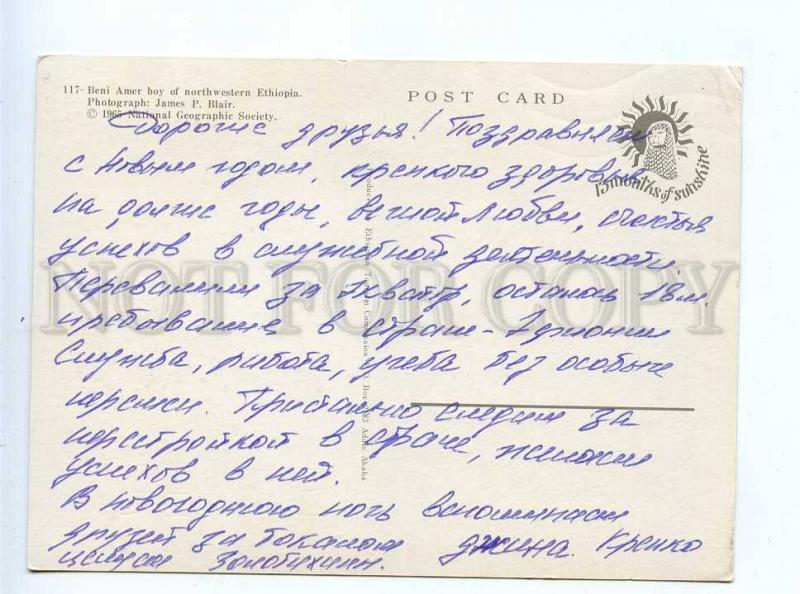 117- Beni Amer boy of northwestern Ethiopia.
Photograph: James P. Blair.
© 1965 National Geographic Society.
POST CARD
13 months of sunshine
Дорогие друзья! Поздравляем
с Новым годом, крепкого здоровья
на долгие годы, вечной любви, счастья
успехов в служебной деятельности.
Перевалили за экватор, осталось 18 м.
пребывания в стране - Эфиопии
Служба, работа, учеба без особых
Пристально следим за
перестройкой в стране, желаем
успехов в ней.
В новогоднюю ночь вспоминаем
друзей за бокалом джина. Крепко
целуем Золотухины.
Ethiopian Tourism Commission
Addis Ababa
NOT FOR COPY